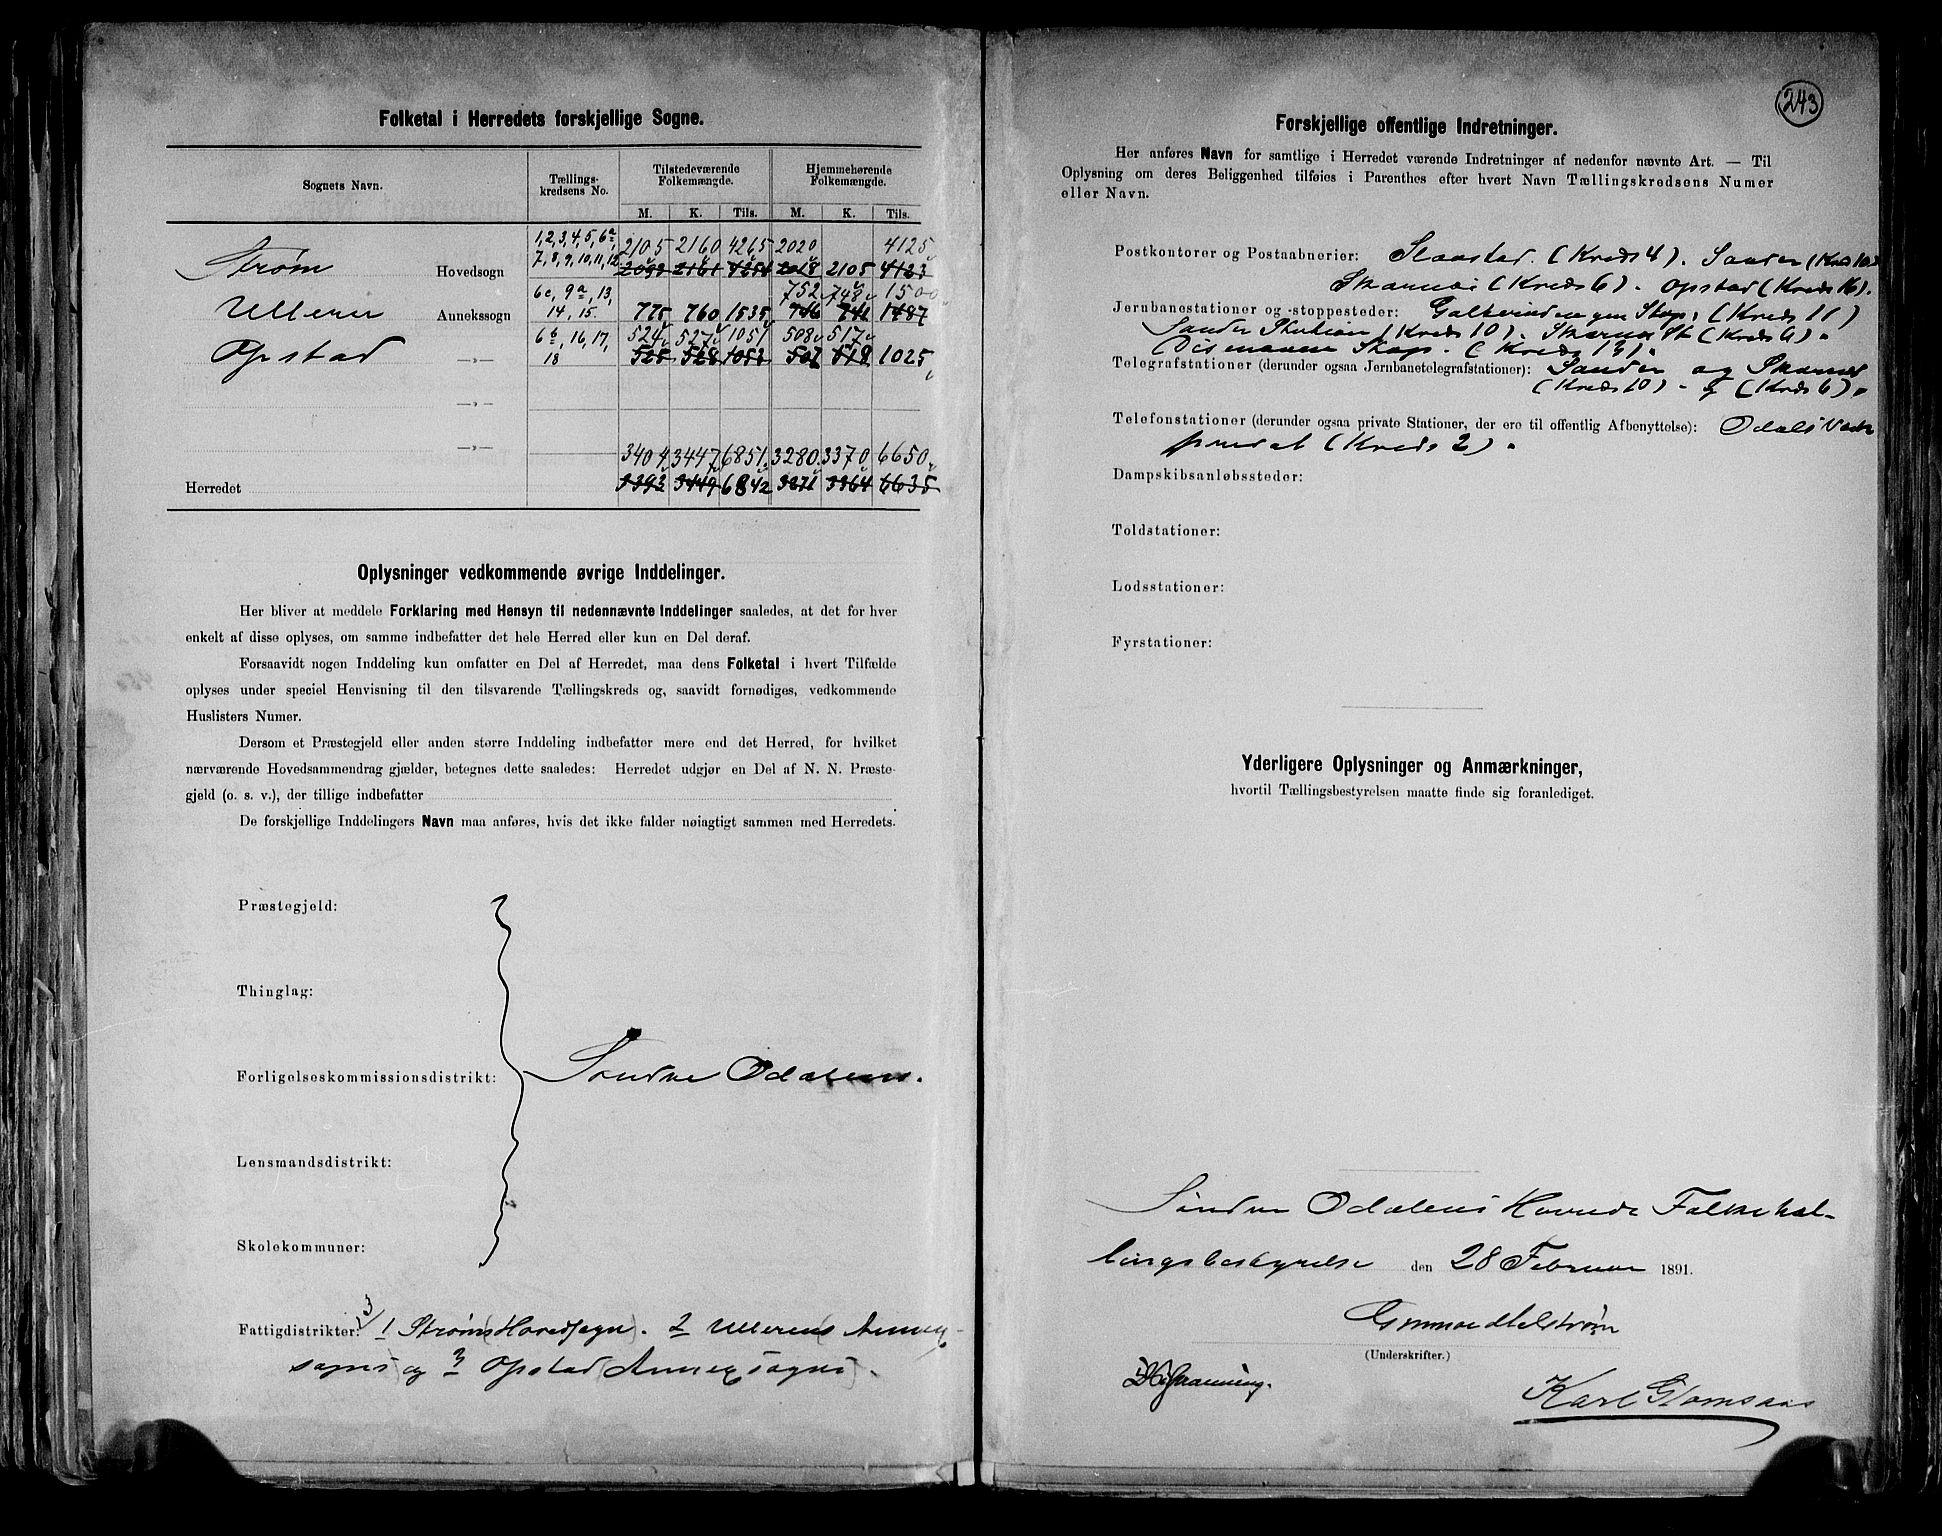 Folketal i Herredets forskjellige Sogne.
Sognets Navn. Tællings-kredsens No. Tilstedeværende Folkemængde. Hjemmehørende Folkemængde.
M. K. Tils. M. K. Tils.
1, 2, 3, 4, 5, 6a, 2105 2160 4265 2020 4125
Strøm Hovedsogn 7, 8, 9, 10, 11, 12. 2093 2161 4254 2018 2105 4123
6c, 9a, 13, 752 748 1500
Ulleren Annekssogn 14, 15. 775 760 1535 746 741 1487
6b, 16, 17, 524 527 1051 508 517
Opstad —„— 18 525 528 1053 507 518 1025
—„—
—„— 3404 3447 6851. 3280 3370 6650
Herredet 3393 3449 6842 3271 3364 6635
Oplysninger vedkommende øvrige Inddelinger.
Her bliver at meddele Forklaring med Hensyn til nedennævnte Inddelinger saaledes, at det for hver
enkelt af disse oplyses, om samme indbefatter det hele Herred eller kun en Del deraf.
Forsaavidt nogen Inddeling kun omfatter en Del af Herredet, maa dens Folketal i hvert Tilfælde
oplyses under speciel Henvisning til den tilsvarende Tællingskreds og, saavidt fornødiges, vedkommende
Huslisters Numer.
Dersom et Præstegjeld eller anden større Inddeling indbefatter mere end det Herred, for hvilket
nærværende Hovedsammendrag gjælder, betegnes dette saaledes: Herredet udgjør en Del af N. N. Præste-
gjeld (o. s. v.), der tillige indbefatter
De forskjellige Inddelingers Navn maa anføres, hvis det ikke falder nøiagtigt sammen med Herredets.
Præstegjeld:
Thinglag:
Forligelseskommissionsdistrikt: Søndre Odalens.
Lensmandsdistrikt:
Skolekommuner:
3
Fattigdistrikter: 1 Strøms (Hovedsogn). 2 Ullerens Annex-
sogns og 3 Opstad (Annexsogns).
243
Forskjellige offentlige Indretninger.
Her anføres Navn for samtlige i Herredet værende Indretninger af nedenfor nævnte Art. — Til
Oplysning om deres Beliggenhed tilføies i Parenthes efter hvert Navn Tællingskredsens Numer
eller Navn.
Postkontorer og Postaabnerier: Slaastad. (Kreds 4). Sander (Kreds 10)
Skarnes (Kreds 6). Opstad (Kreds 16).
Jernbanestationer og -stoppesteder: Galterud Stop. (Kreds 11)
Sander Station (Kreds 10). Skarnes St (Kreds 6).
Disenaaen Stop. (Kreds 13).
Telegrafstationer (derunder ogsaa Jernbanetelegrafstationer): Sander og Skarnes
(Kreds 10) - (Kreds 6).
Telefonstationer (derunder ogsaa private Stationer, der ere til offentlig Afbenyttelse): Odals Værk
(Kreds 2).
Dampskibsanløbssteder:
Toldstationer:
Lodsstationer:
Fyrstationer:
Yderligere Oplysninger og Anmærkninger,
hvortil Tællingsbestyrelsen maatte finde sig foranlediget.
Søndre Odalens Herreds Folketæl-
lingsbestyrelse den 28 Februar 1891.
(Underskrifter.)
Karl Glomsaas